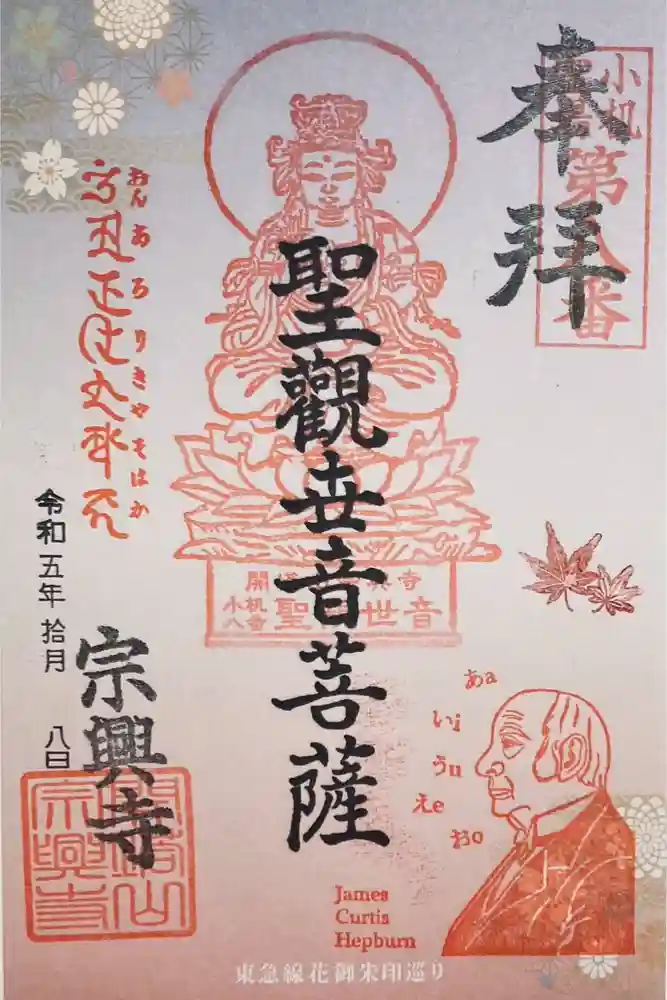 奉拝
小机
第八番
聖觀世音菩薩
興寺
小机
八番
聖 世音
おんあろりきやそはか
令和五年 拾月 八日
宗興寺
宗興寺
あa
いi
うu
えe
おo
James
Curtis
Hepburn
東急線花御朱印巡り